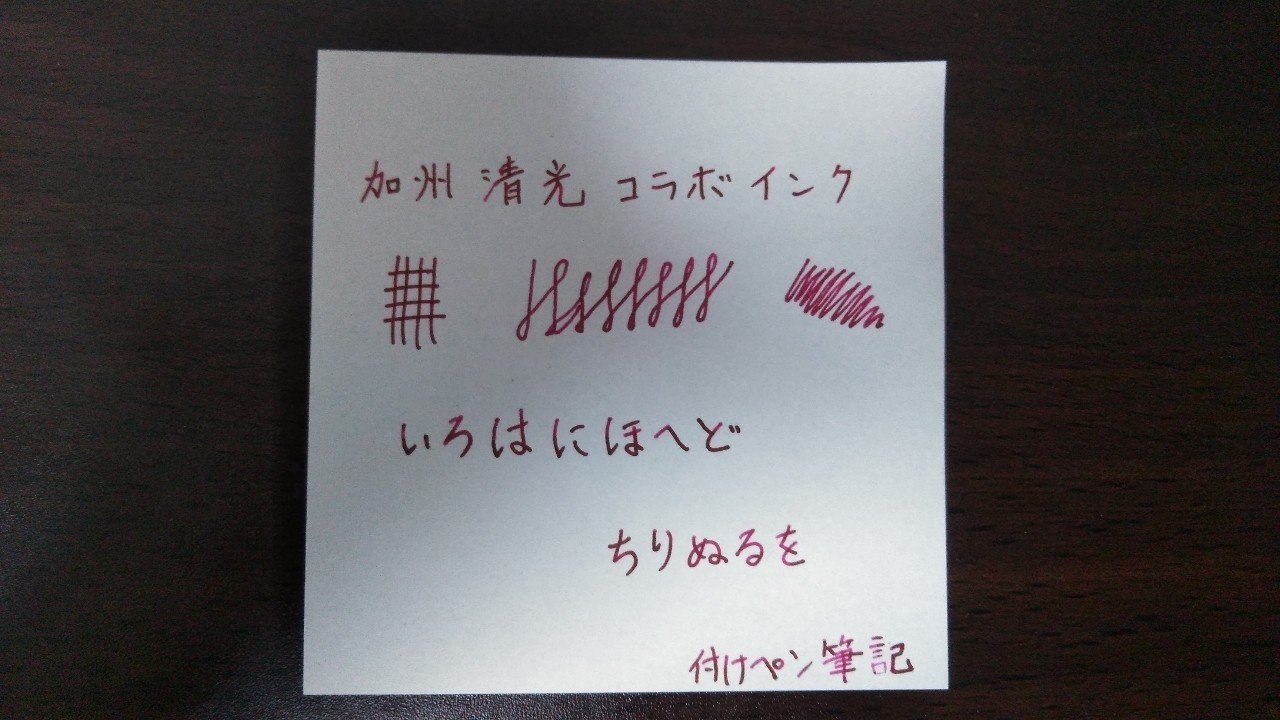 加州清光コラボインク
いろはにほへど
ちりぬるを
付けペン筆記